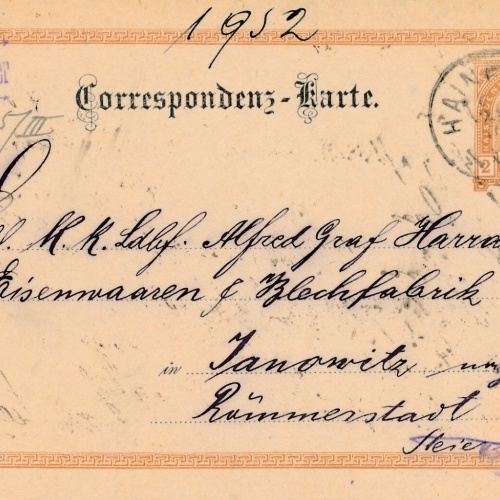 1952
Correspondenz-Karte.
5/III
HAIN
2
K. K. Ldbf. Alfred Graf Harra
Eisenwaaren & Blechfabrik
in Janowitz
Römmerstadt